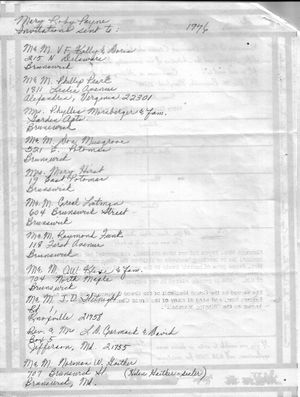 Mary Roby Payne
Invitations sent to: 1976
Mr. M. V.F. Kelly & Doris
215 N Delaware
Brunswick
Mr. M. Phillip Peart
1811 Leslie Avenue
Alexandria, Virginia 22301
Mrs. Phyllis & Fam.
Garden Apts.
Brunswick
Mr. M. Don Musgrove
521 E. Potomac
Brunswick
Mrs. Mary Hurst
19 East Potomac
Brunswick
Mr. M.
604 Brunswick Street
Brunswick
Mr. M. Raymond Funk
118 First Avenue
Brunswick
Mr. M. & Fam.
704 North Maple
Brunswick
Mr. M. T.D.
Rd 1
Knoxville 21758
Rev. & Mrs. L.M. Carmack & David
Box 5
Jefferson, Md. 21755
Mr. M. Norman W. Gaither
707 Brunswick St
Brunswick, Md.